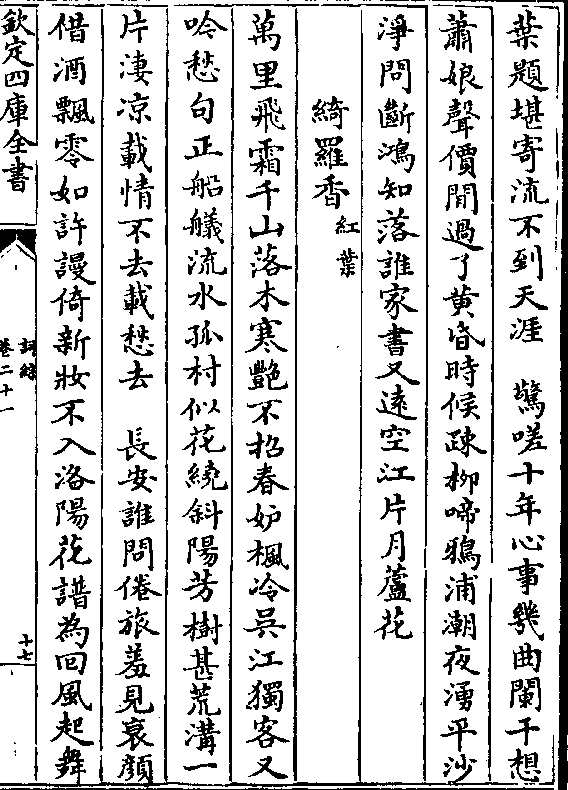 葉題堪寄流不到天涯　驚嗟十年心事幾曲闌干想
蕭娘聲價閒過了黄昏時候疎柳啼鴉浦潮夜湧平沙
淨問斷鴻知落誰家書又遠空江片月蘆花
綺羅香紅葉
萬里飛霜千山落木寒艷不招春妒楓冷吳江獨客又
吟愁句正船艤流水孤村似花繞斜陽芳樹甚荒溝一
片淒凉載情不去載愁去　長安誰問倦旅羞見衰顔
借酒飄零如許謾倚新妝不入洛陽花譜為囘風起舞
欽定四庫全書
詞綜
卷二十一
十七